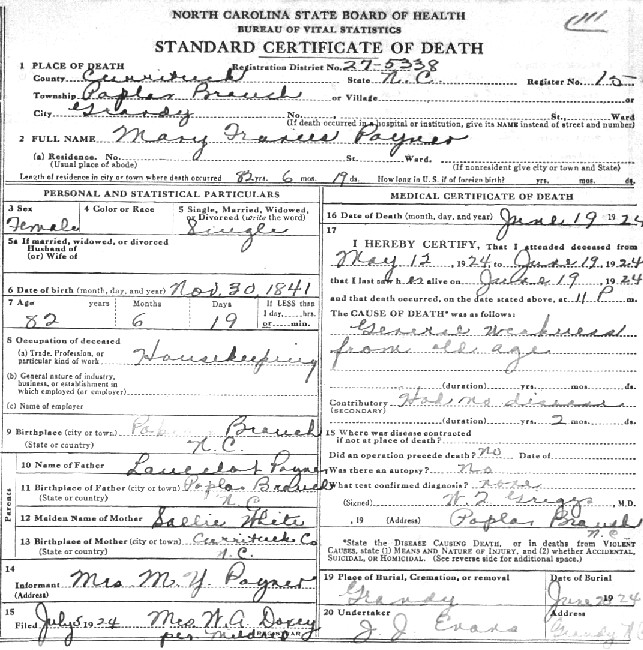 NORTH CAROLINA STATE BOARD OF HEALTH
BUREAU OF VITAL STATISTICS
STANDARD CERTIFICATE OF DEATH
1 PLACE OF DEATH Registration District No. 27-5338
County Currituck State N.C. Register No. 15
Township Poplar Branch or Village or
City Grandy No. St., Ward
(If death occurred in a hospital or institution, give its NAME instead of street and number)
2 FULL NAME Mary Frances Poyner
(a) Residence. No. St. Ward.
(Usual place of abode) (If nonresident give city or town and State)
Length of residence in city or town where death occurred 82 yrs. 6 mos. 19 ds. How long in U.S. if of foreign birth? yrs. mos. ds.
PERSONAL AND STATISTICAL PARTICULARS
3 Sex 4 Color or Race 5 Single, Married, Widowed,
or Divorced (write the word)
Female Single
5a If married, widowed, or divorced
Husband of
(or) Wife of
6 Date of birth (month, day, and year) Nov. 30, 1841
7 Age years Months Days If LESS than
1 day, hrs.
or min.
82 6 19
8 Occupation of deceased
(a) Trade, Profession, or
particular kind of work Housekeeping
(b) General nature of industry,
business, or establishment in
which employed (or employer)
(c) Name of employer
9 Birthplace (city or town) Branch
(State or country) N.C.
Parents
10 Name of Father Poyner
11 Birthplace of Father (city or town) Poplar Branch
(State or country) N.C.
12 Maiden Name of Mother Sallie White
13 Birthplace of Mother (city or town) Currituck Co
(State or country) N.C.
14
Informant Mrs M. Y. Poyner
(Address)
15
Filed July 5 1924 Mrs W. A. Doxey
per
REGISTRAR
MEDICAL CERTIFICATE OF DEATH
16 Date of Death (month, day, and year) June 19 1924
17
I HEREBY CERTIFY, That I attended deceased from
May 12, 1924 to June 19, 1924
that I last saw her alive on June 19, 1924
and that death occurred, on the date stated above, at 11 P m.
The CAUSE OF DEATH* was as follows:
weakness
from old age
(duration) yrs. mos. ds.
Contributory Had no disease
(SECONDARY)
(duration) yrs. 2 mos. ds.
18 Where was disease contracted
if not at place of death?
Did an operation precede death? No Date of
Was there an autopsy? No
What test confirmed diagnosis? none
(Signed) Griggs, M.D.
, 19 (Address) Poplar Branch
N.C.
*State the DISEASE CAUSING DEATH, or in deaths from VIOLENT
CAUSES, state (1) MEANS AND NATURE OF INJURY, and (2) whether ACCIDENTAL,
SUICIDAL, or HOMICIDAL. (See reverse side for additional space.)
19 Place of Burial, Cremation, or removal Date of Burial
Grandy June 1924
20 Undertaker Address
J. J. Evans Grandy N.C.